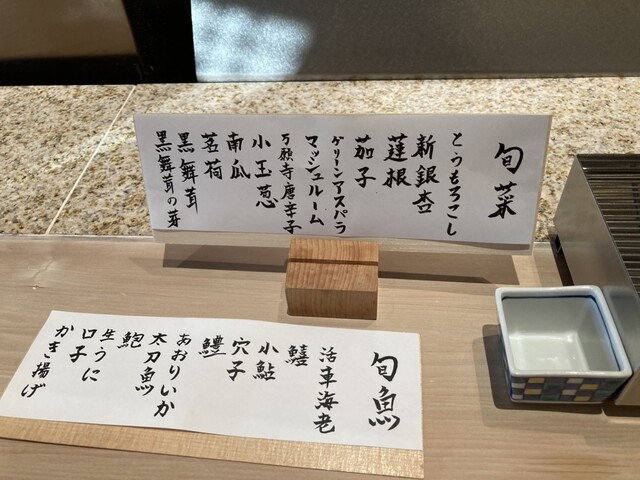 旬菜
とうもろこし
新銀杏
蓮根
茄子
グリーンアスパラ
マッシュルーム
万願寺唐辛子
小玉葱
南瓜
茗荷
黒舞茸
黒舞茸の芽
旬魚
活車海老
鱚
小鮎
穴子
鱧
あおりいか
太刀魚
鮑
生うに
口子
かき揚げ